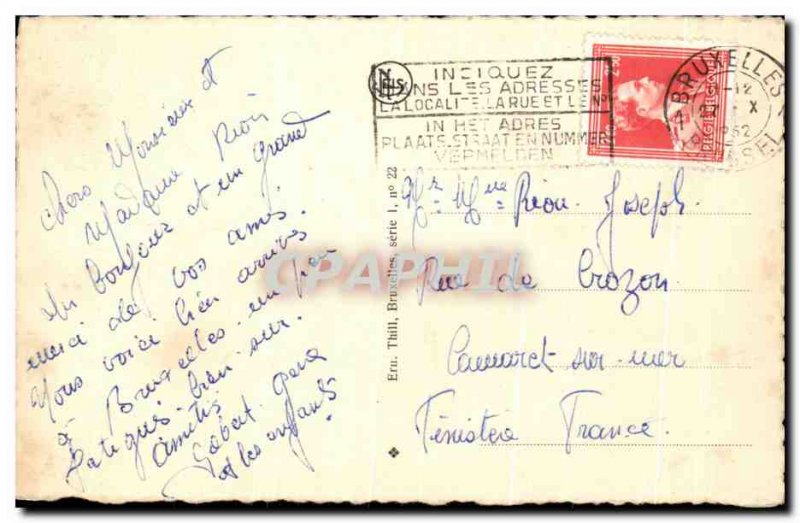 Chers Monsieur et
Madame Riou
Un bonjour et un grand
merci de vos amis.
Nous voici bien arrivés
à Bruxelles. un peu
fatigués. bien sur.
Amitiés
et les enfants
NELS
INDIQUEZ
DANS LES ADRESSES
LA LOCALITE, LA RUE ET LE No
IN HET ADRES
PLAATS, STRAAT EN NUMMER
VERMELDEN
BRUXELLES 1
12
X
1952
BRUSSEL
BELGIE BELGIQUE
Mr = Mme = Riou Joseph
Rue de Crozon
Camaret-sur-mer
Finistea France.
Ern. Thill, Bruxelles, série 1, n° 22
CPAPHIL